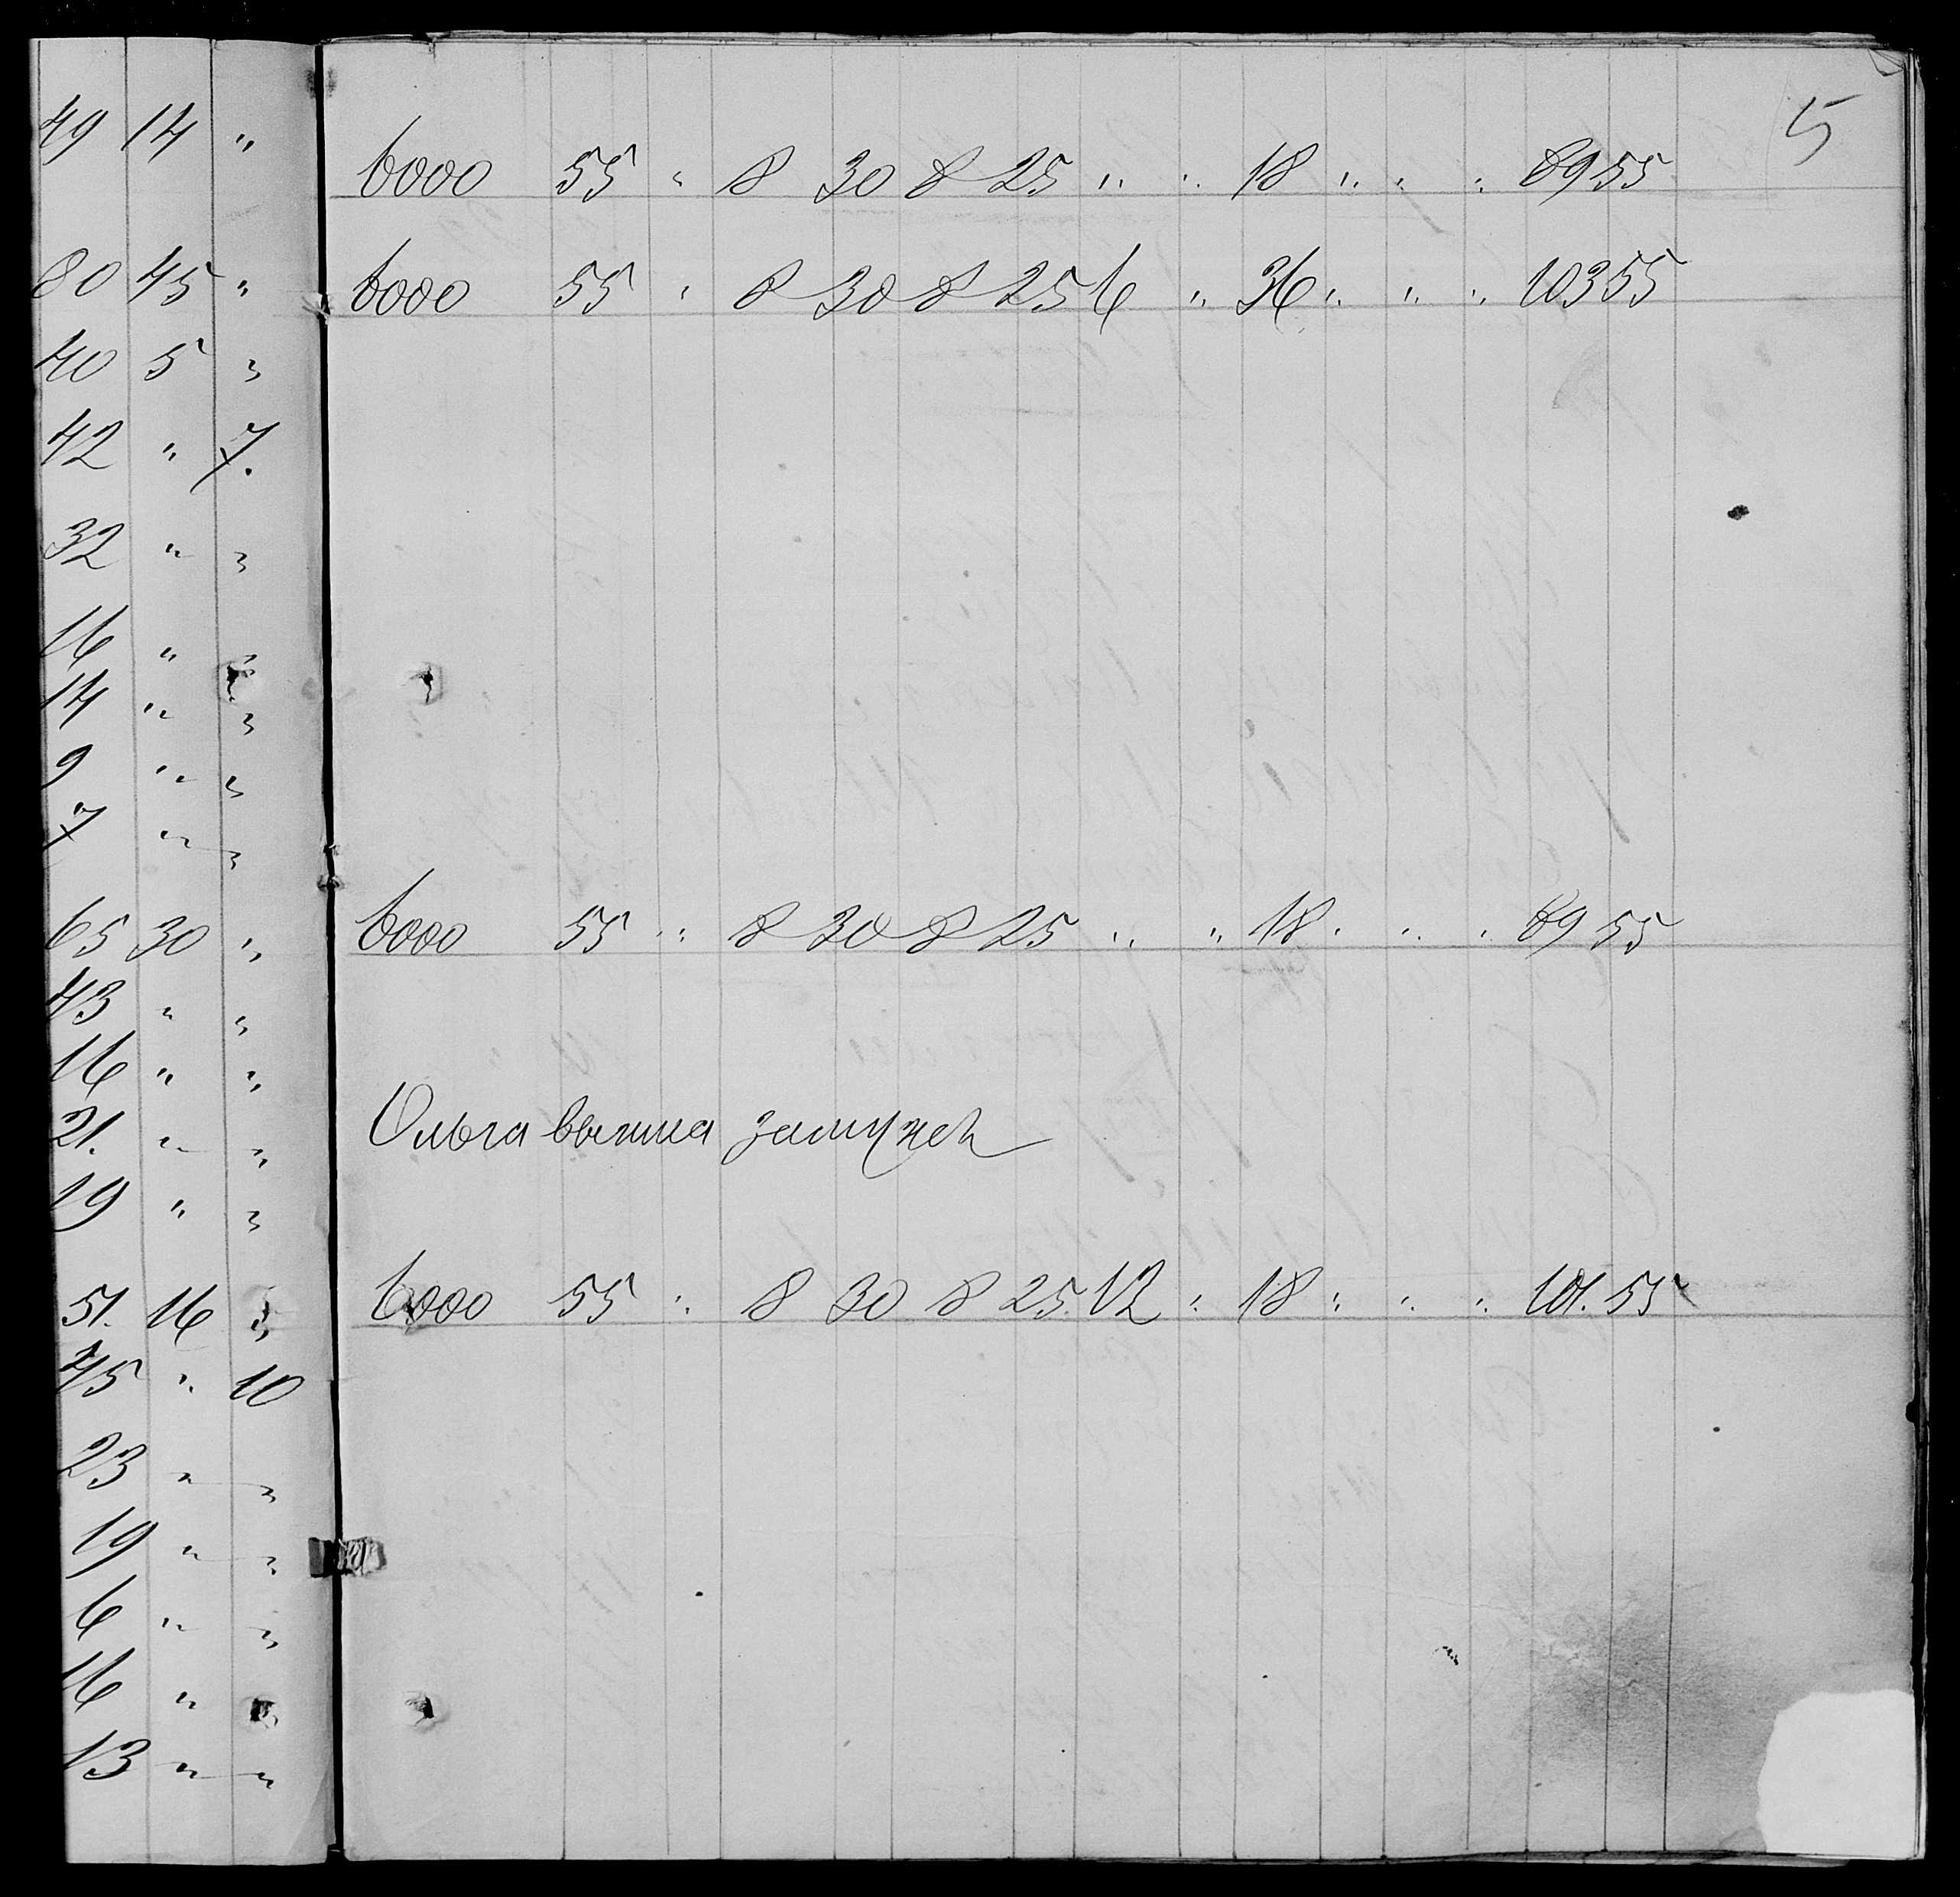 5
49 14 "
6000 55 " 8 30 8 25 " " 18 " " " 89 55
80 45 "
6000 55 " 8 30 8 25 6 " 36 " " " 103 55
40 5 "
42 " 7.
32 " "
16 " "
14 " "
9 " "
7 " "
65 30 "
6000 55 " " 8 30 8 25 " " 18 " " " 89 55
43 " "
16 " "
21. " "
Ольга вышла замужей
19 " "
51. 16 "
6000 55 " 8 30 8 25 12 " 18 " " " 101. 55
45 " 10
23 " "
19 " "
6 " "
16 " "
13 " "